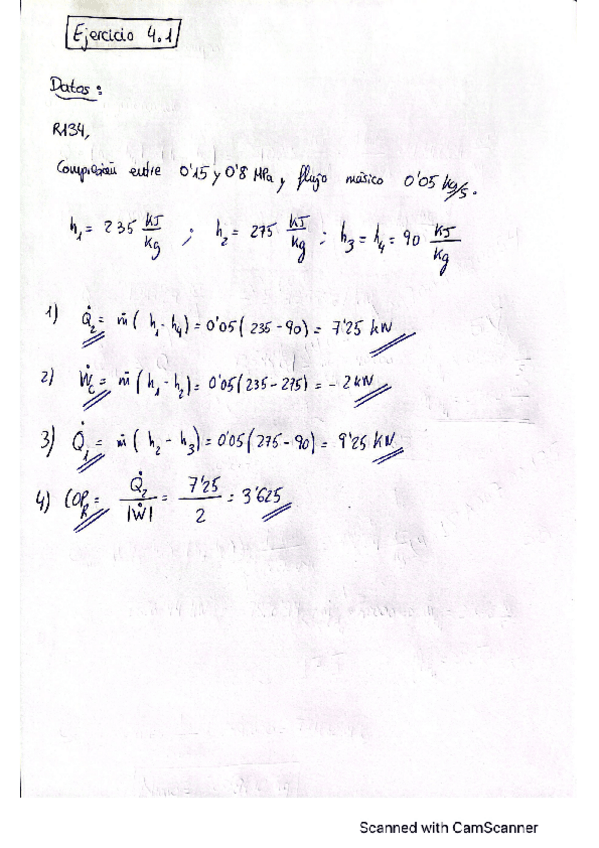 Ejercicio 4.1
Datos:
R134,
Compresión entre 0'15 y 0'8 MPa y flujo másico 0'05 kg/s.
h₁ = 235 KJ/Kg ; h₂ = 275 KJ/Kg ; h₃ = h₄ = 90 KJ/Kg
1) Q̇₂ = ṁ ( h₁ - h₄) = 0'05 ( 235 - 90) = 7'25 kW
2) Ẇc = ṁ ( h₁ - h₂) = 0'05 (235 - 275) = - 2 kW
3) Q̇₁ = ṁ ( h₂ - h₃) = 0'05 (275 - 90) = 9'25 KW
4) COP_R = Q̇₂/|Ẇ| = 7'25/2 = 3'625
Scanned with CamScanner